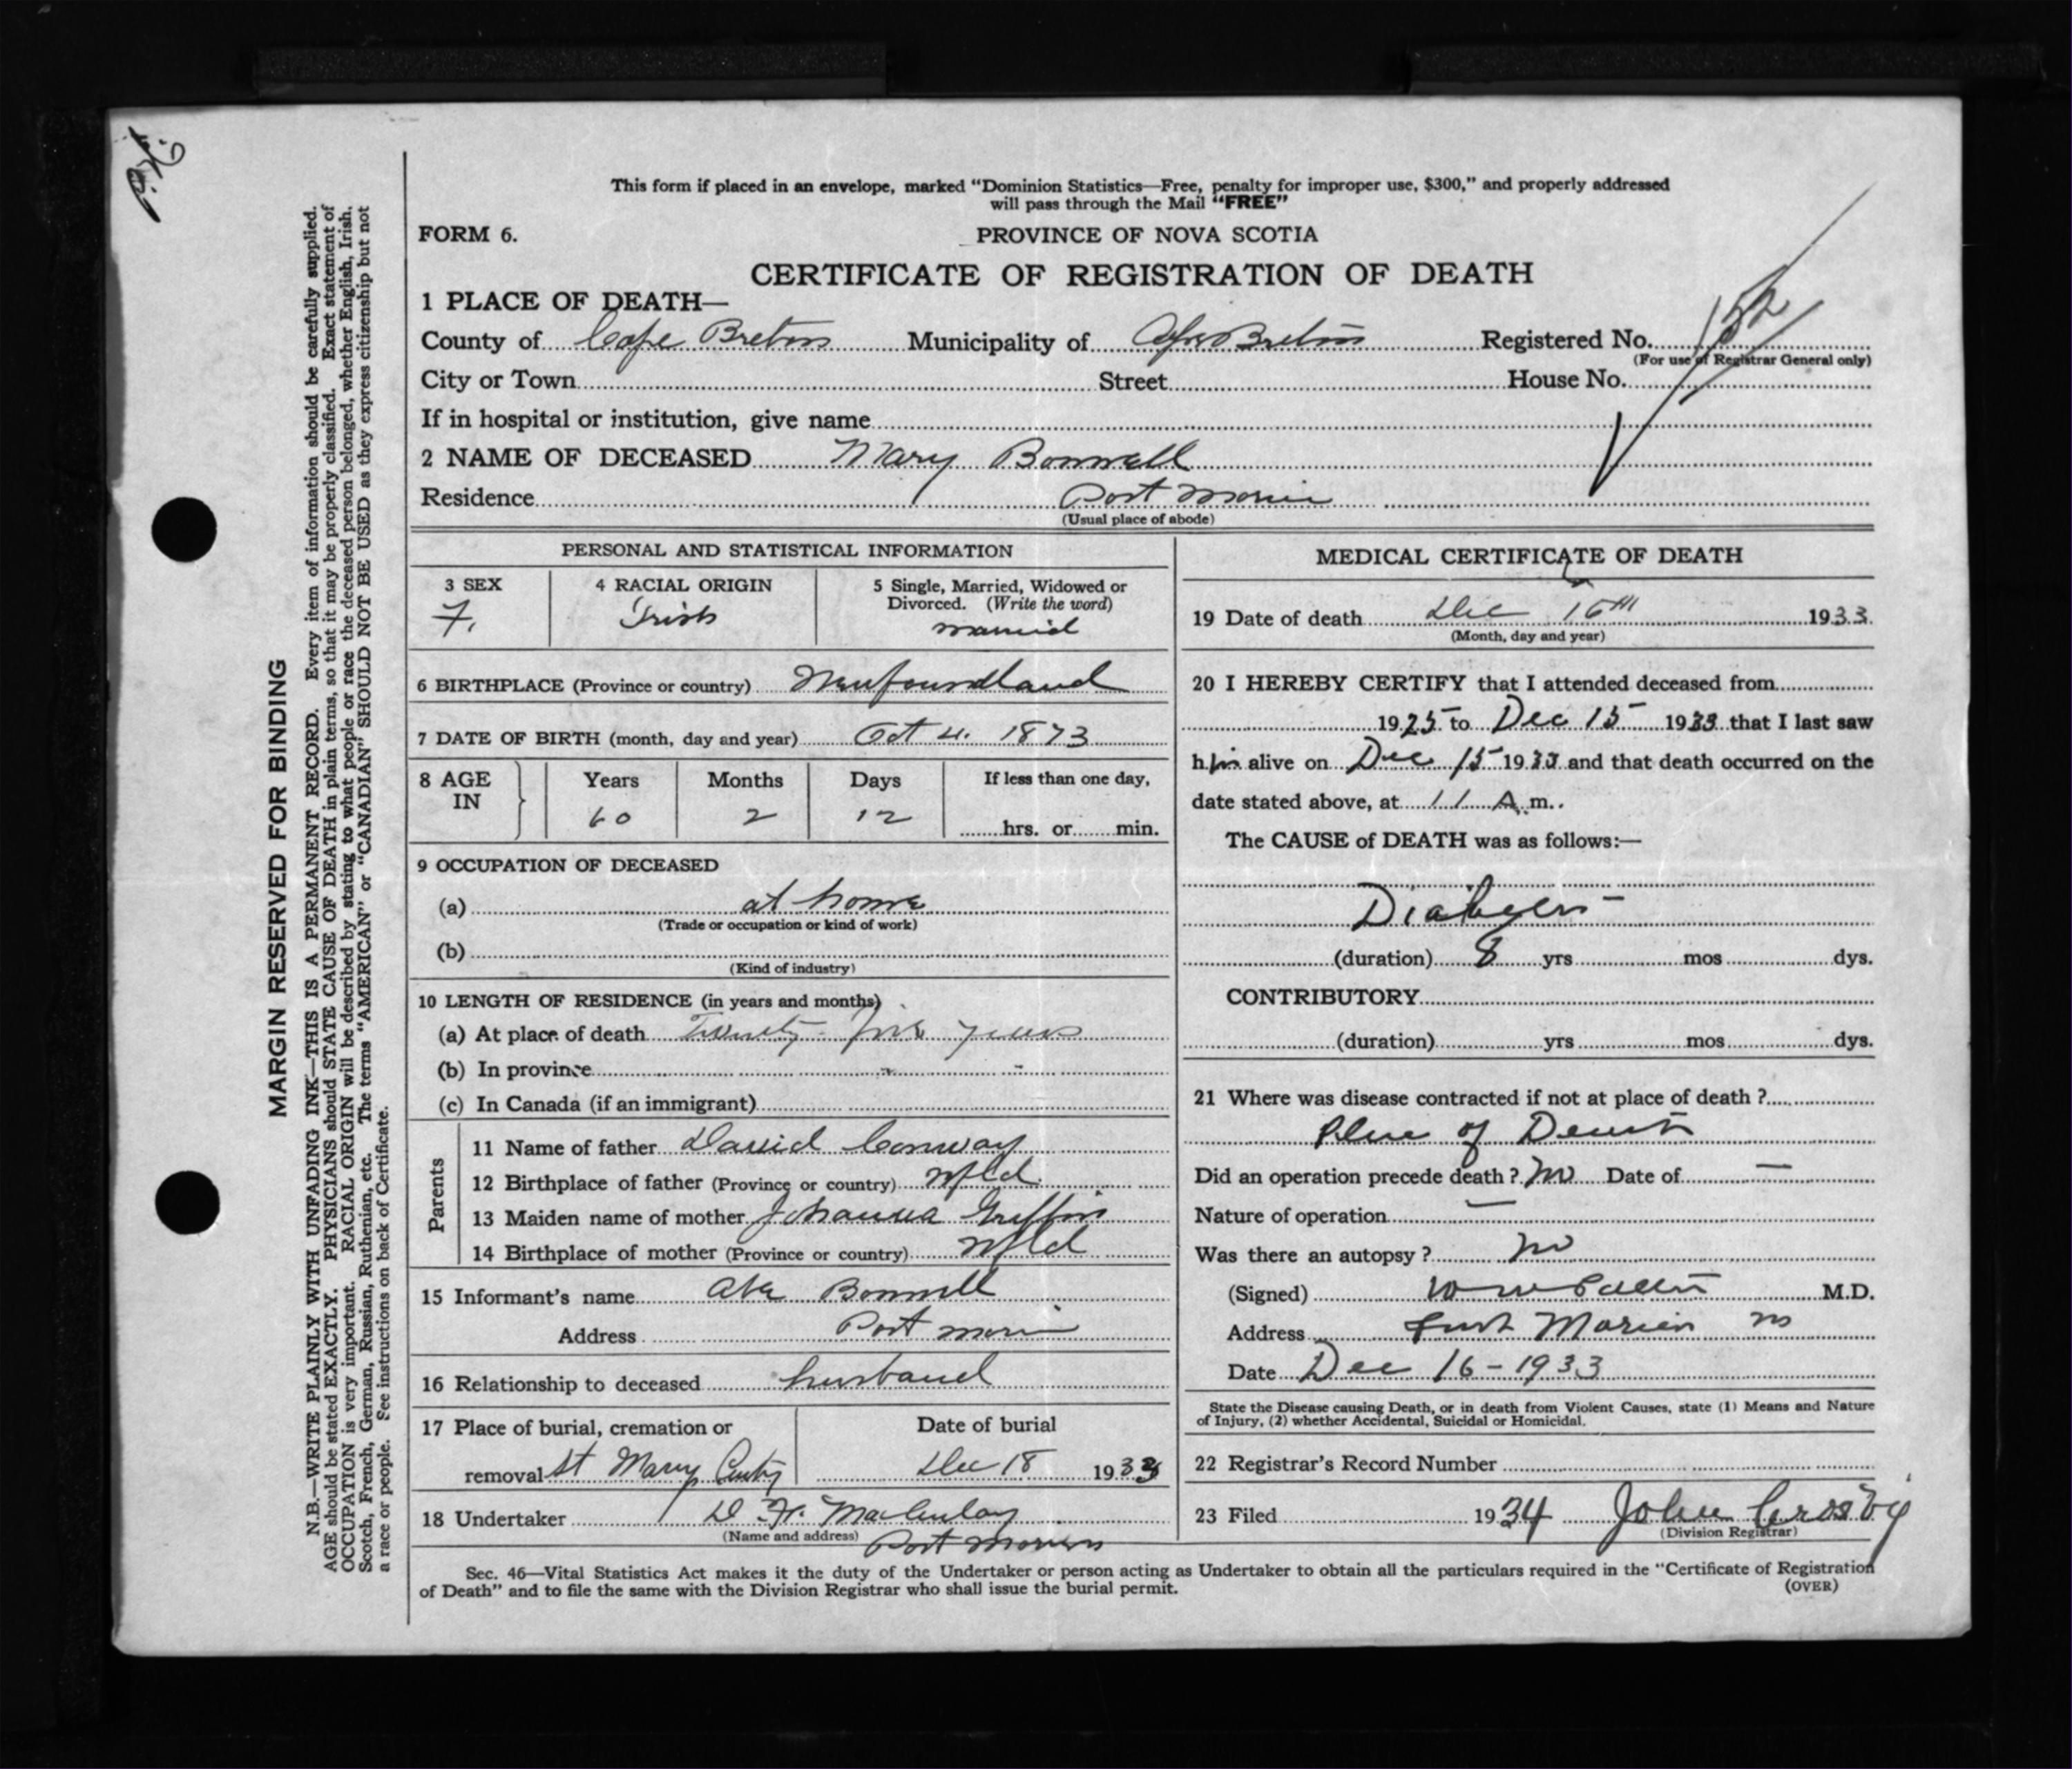 This form if placed in an envelope, marked "Dominion Statistics—Free, penalty for improper use, $300," and properly addressed
will pass through the Mail "FREE"
FORM 6.
PROVINCE OF NOVA SCOTIA
CERTIFICATE OF REGISTRATION OF DEATH
1 PLACE OF DEATH—
County of Cape Breton Municipality of Cape Breton Registered No.
(For use of Registrar General only)
City or Town Street House No.
If in hospital or institution, give name
2 NAME OF DECEASED Mary Bonnell
Residence Port Morien
(Usual place of abode)
PERSONAL AND STATISTICAL INFORMATION
3 SEX 4 RACIAL ORIGIN 5 Single, Married, Widowed or
Divorced. (Write the word)
F. Irish married
6 BIRTHPLACE (Province or country) Newfoundland
7 DATE OF BIRTH (month, day and year) Oct 4. 1873
8 AGE IN Years Months Days If less than one day,
60 2 12 hrs. or min.
9 OCCUPATION OF DECEASED
(a) at home
(Trade or occupation or kind of work)
(b)
(Kind of industry)
10 LENGTH OF RESIDENCE (in years and months)
(a) At place of death Twenty five years
(b) In province
(c) In Canada (if an immigrant)
Parents
11 Name of father David Conway
12 Birthplace of father (Province or country) Nfld.
13 Maiden name of mother Johanna Griffin
14 Birthplace of mother (Province or country) Nfld
15 Informant's name Abe Bonnell
Address Port Morien
16 Relationship to deceased husband
17 Place of burial, cremation or Date of burial
removal St Marys Dec 18 1933
18 Undertaker D. H. MacAulay
(Name and address) Port Morien
MEDICAL CERTIFICATE OF DEATH
19 Date of death Dec 16th 1933
(Month, day and year)
20 I HEREBY CERTIFY that I attended deceased from
1925 to Dec 15 1933 that I last saw
h alive on Dec 15 1933 and that death occurred on the
date stated above, at 11 A.m.
The CAUSE of DEATH was as follows:—
Diabetes
(duration) 8 yrs mos dys.
CONTRIBUTORY
(duration) yrs mos dys.
21 Where was disease contracted if not at place of death ?
Place of Death
Did an operation precede death ? No Date of —
Nature of operation —
Was there an autopsy ? No
(Signed) M.D.
Address Port Morien NS
Date Dec 16-1933
State the Disease causing Death, or in death from Violent Causes, state (1) Means and Nature
of Injury, (2) whether Accidental, Suicidal or Homicidal.
22 Registrar's Record Number
23 Filed 1934 John Crosby
(Division Registrar)
Sec. 46—Vital Statistics Act makes it the duty of the Undertaker or person acting as Undertaker to obtain all the particulars required in the "Certificate of Registration
of Death" and to file the same with the Division Registrar who shall issue the burial permit.
(OVER)
MARGIN RESERVED FOR BINDING
N.B.—WRITE PLAINLY WITH UNFADING INK—THIS IS A PERMANENT RECORD. Every item of information should be carefully supplied.
AGE should be stated EXACTLY. PHYSICIANS should STATE CAUSE OF DEATH in plain terms, so that it may be properly classified. Exact statement of
OCCUPATION is very important. RACIAL ORIGIN will be described by stating to what people or race the deceased person belonged, whether English, Irish,
Scotch, French, German, Russian, Ruthenian, etc. The terms "AMERICAN" or "CANADIAN" SHOULD NOT BE USED as they express citizenship but not
a race or people. See instructions on back of Certificate.